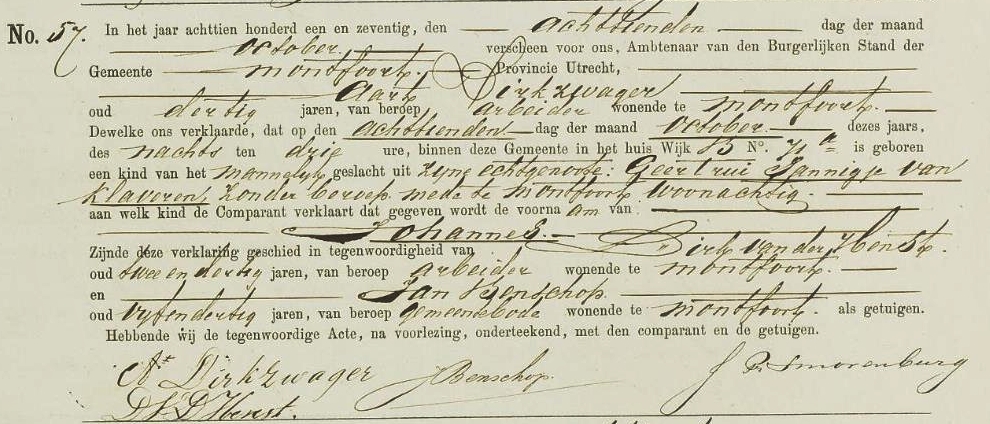 No. 57. In het jaar achttien honderd een en zeventig, den achttienden dag der maand
october. verscheen voor ons, Ambtenaar van den Burgerlijken Stand der
Gemeente montfoort, Provincie Utrecht,
Aart Dirkzwager
oud dertig jaren, van beroep arbeider wonende te montfoort.
Dewelke ons verklaarde, dat op den achttienden dag der maand october dezes jaars,
des nachts ten drie ure, binnen deze Gemeente in het huis Wijk B No. 71a is geboren
een kind van het mannelyk geslacht uit zyne echtgenoote: Geertrui Jannigje van
Klaveren, zonder beroep mede te montfoort woonachtig.
aan welk kind de Comparant verklaart dat gegeven wordt de voornaam van
Johannes.
Zijnde deze verklaring geschied in tegenwoordigheid van Dirk van der Henst.
oud twee en dertig jaren, van beroep arbeider wonende te montfoort.
en Jan Benschop.
oud vyfendertig jaren, van beroep gemeentebode wonende te montfoort. als getuigen.
Hebbende wij de tegenwoordige Acte, na voorlezing, onderteekend, met den comparant en de getuigen.
At Dirkzwager J Benschop. J Smorenburg
D V D Henst.